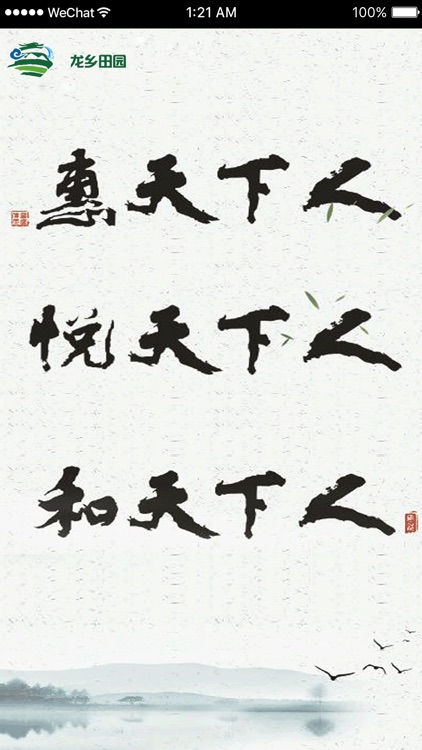 WeChat 1:21 AM 100%
龙乡田园
惠天下人
悦天下人
和天下人